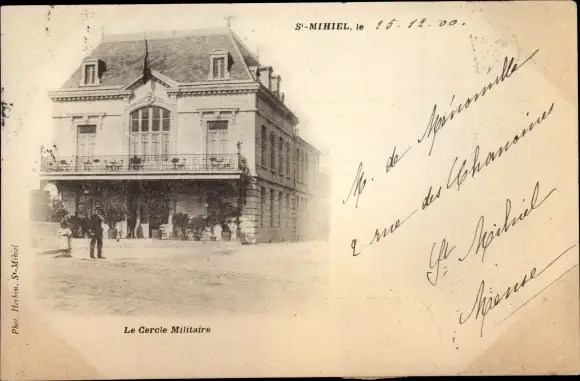 St-MIHIEL, le 25.12.00.
M. de Ménonville
2 rue des Chanoines
St Mihiel
Meuse
Le Cercle Militaire
Phot. Herbin, St-Mihiel